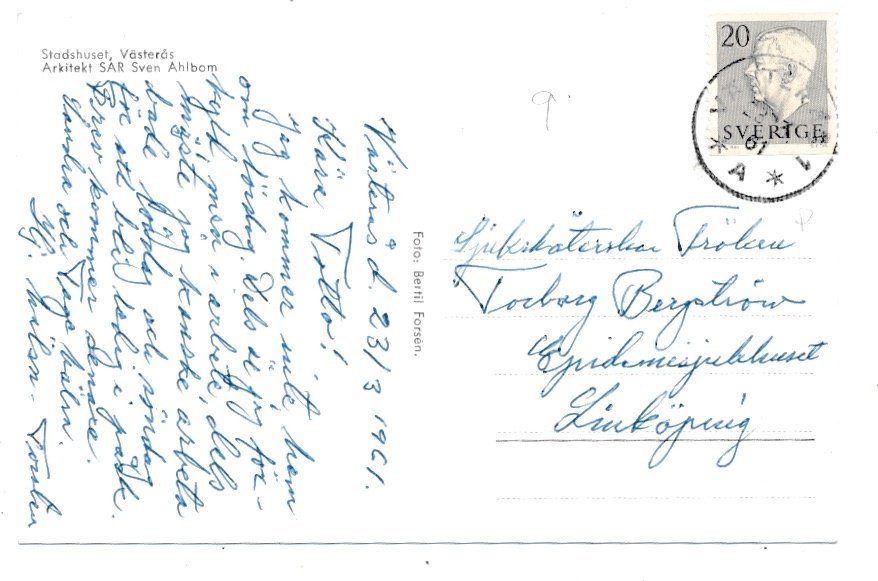 Stadshuset, Västerås
Arkitekt SAR Sven Ahlbom
Västerås d. 23/3 1961.
Kära Totto!
Jag kommer inte hem
om lördag. Dels är jag för-
kyld, men i arbete, dels
måste jag kanske arbeta
både lördag och söndag
för att bli ledig i påsk.
Brev kommer senare.
och Tage hälsn.
Hj. hälsn. Torsten
Foto: Bertil Forsén.
20
SVERIGE
61
Sjuksköterskan Fröken
Torborg Bergström
Epidemisjukhuset
Linköping